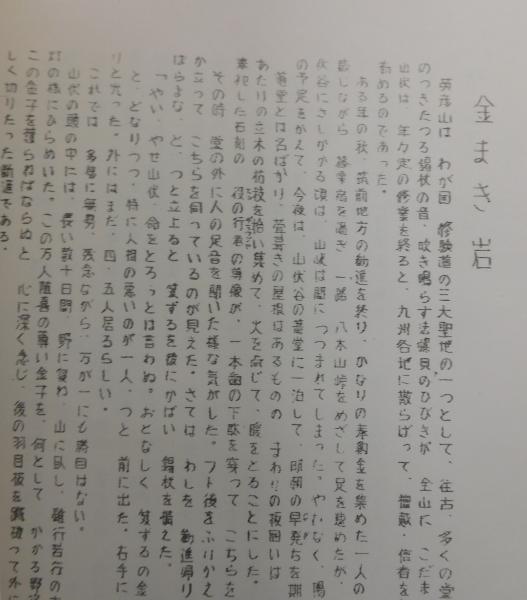 金まき岩
英彦山は わが国 修験道の三大聖地の一つとして、往古、多くの堂
のつきたつる錫杖の音、吹き鳴らす法螺貝のひびきが 全山に こだま
山伏は 年々定の修業を終ると、九州各地に散らばって、檀家・信者を
勧めるのであった。
ある年の秋、筑前地方の勧進を終り、かなりの奉納金を集めた一人の
暮しながら 篠栗宿を過ぎ 一路 八木山峠をめざして足を速めたが、
伏谷にさしかかる頃は、山峡は闇につつまれてしまった。やむなく、陽
の予定をかえて、今夜は、山伏谷の草堂に一泊して、明朝の早発ちを期
草堂とは名ばかり、萱葺きの屋根はあるものの まわりの板囲いは
あたりの立木の枯枝を拾い集めて、火を点じて、暖をとることにした。
奉祀した石刻の 役の行者の尊像が、一本歯の下駄を穿って こちらを
その時 堂の外に人の足音を聞いた様な気がした。フト後をふりかえ
か立って こちらを伺っているのが見えた。さては わしを 勧進帰り
ばらよな、と、つと立上ると 笈ずるを後にかばい 錫杖を構えた。
「やい、やせ山伏、命をとろうとは言わぬ。おとなしく 笈ずるの金
と、どなりつつ、特に人相の悪いのが一人、つと 前に出た。右手に
りと光った。外にはまだ、四、五人居るらしい。
これでは 多勢に無勢、残念ながら、万が一にも勝目はない。
山伏の頭の中には、長い数十日間 野に寝ね、山に臥し、難行苦行の
灯の様にひらめいた。この万人随喜の尊い金子を、何として かかる野盗
この金子を護らねばならぬと 心に深く念じ、後の羽目板を蹴破って外に
しく切りたった断崖である。